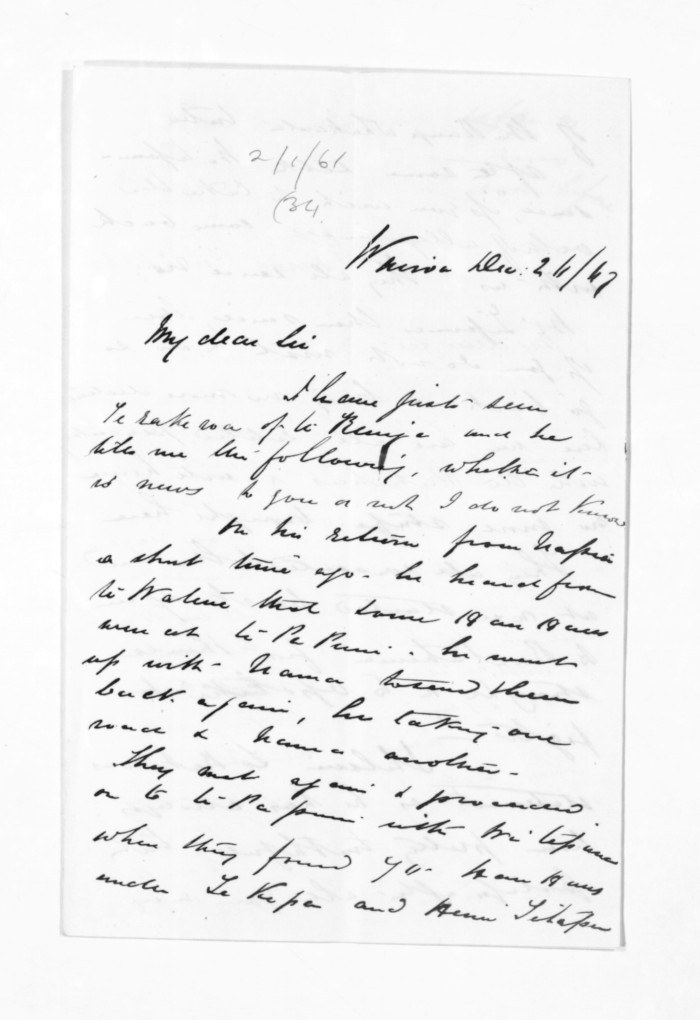 2/1/61
(34
Wairoa Dec: 24/67
My dear Sir
I have just seen
Te rakeroa of te Reinga and he
tells me the following, whether it
is news to you or not I do not know
On his return from Napier
a short time ago he heard from
te Waline that some Hau Haus
were at te Pa Puni. he went
up with Nama to send them
back again, he taking one
road & Nama another.
They met again & proceeded
on to te Papuni with
when they found 40 Hau Haus
under Te Kepa and Henri